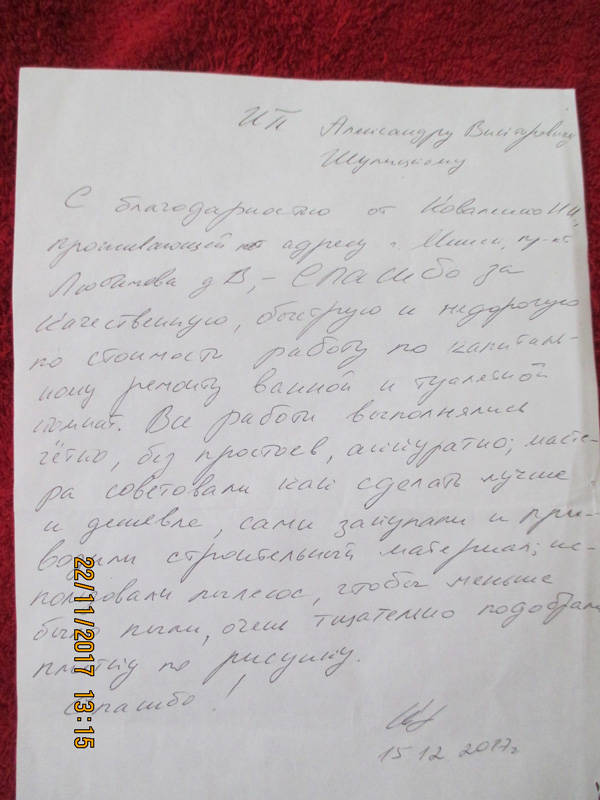 ИП Александру Викторовичу
Шулицкому
С благодарностью от Коваленко Н.И.,
проживающей по адресу г. Минск, пр-кт
Любимова д , – Спасибо за
качественную, быструю и недорогую
по стоимости работу по капиталь-
ному ремонту ванной и туалетной
комнат. Все работы выполнялись
чётко, без простоев, аккуратно; масте-
ра советовали как сделать лучше
и дешевле, сами закупали и при-
возили строительный материал; ис-
пользовали пылесос, чтобы меньше
было пыли, очень тщательно подобрали
плитку по рисунку.
Спасибо!
15 12 2017г
22/11/2017 13:15